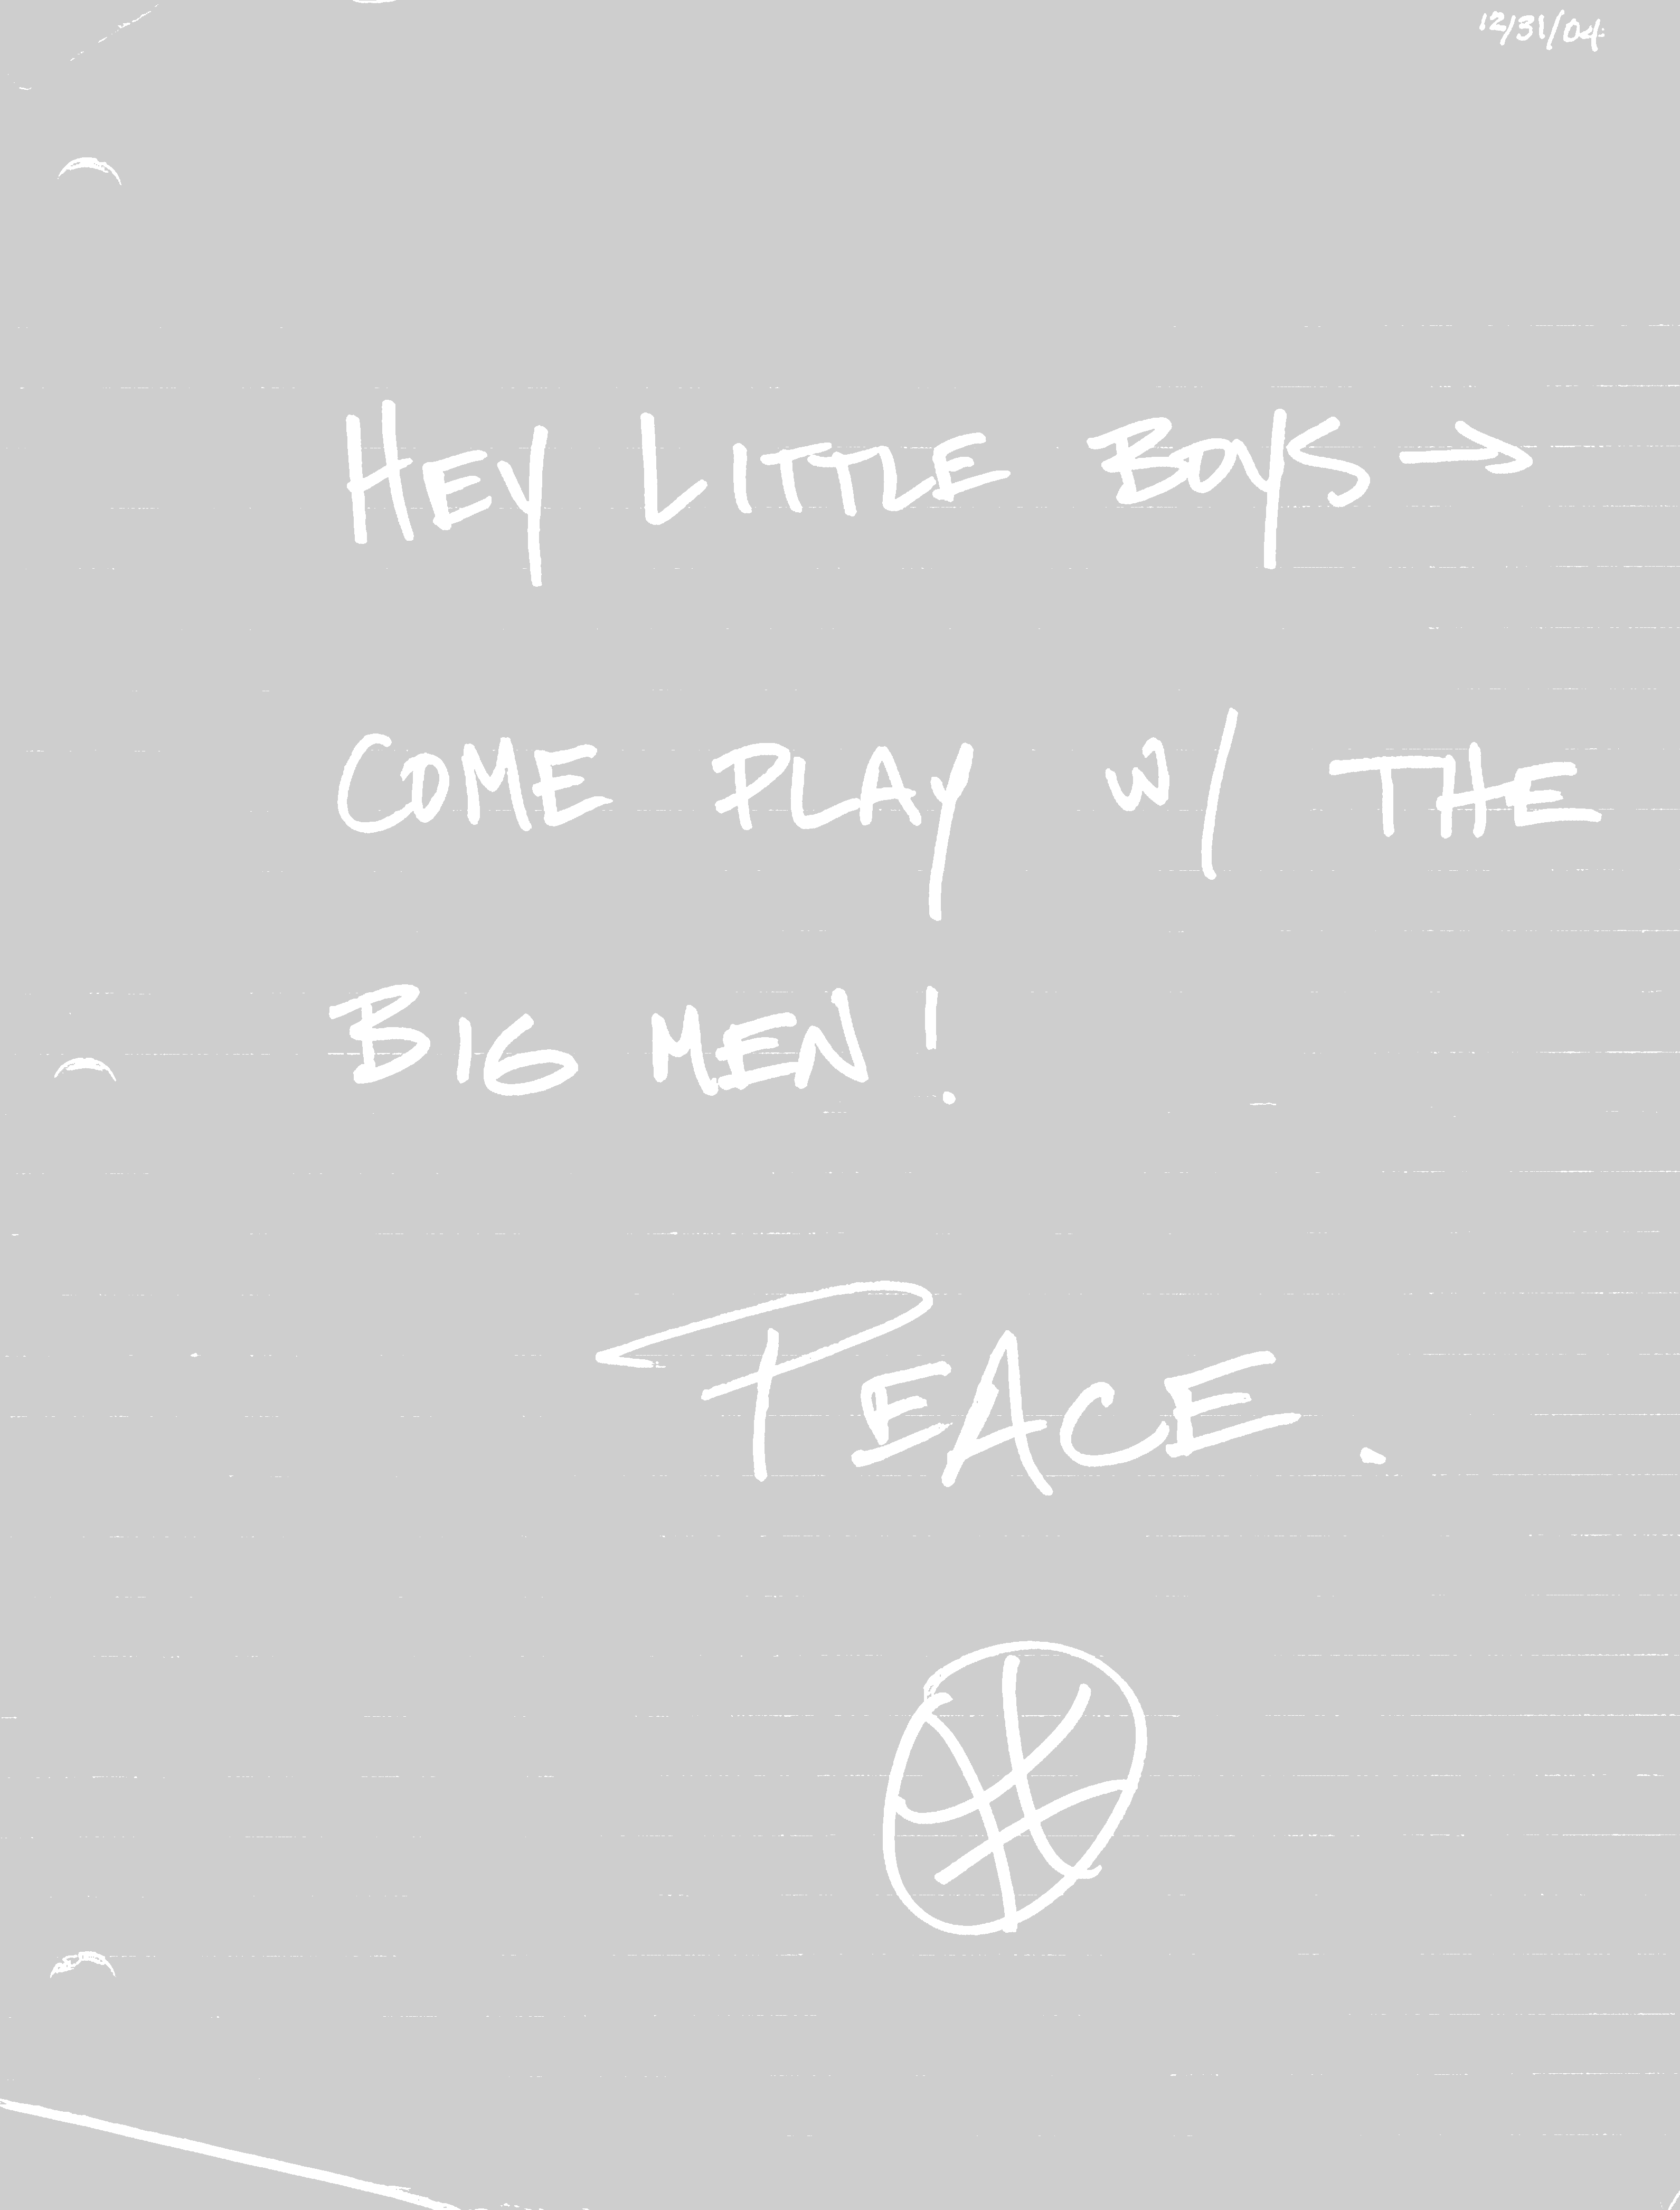 12/31/04
HEY LITTLE BOYS →
COME PLAY W/ THE
BIG MEN!
PEACE.